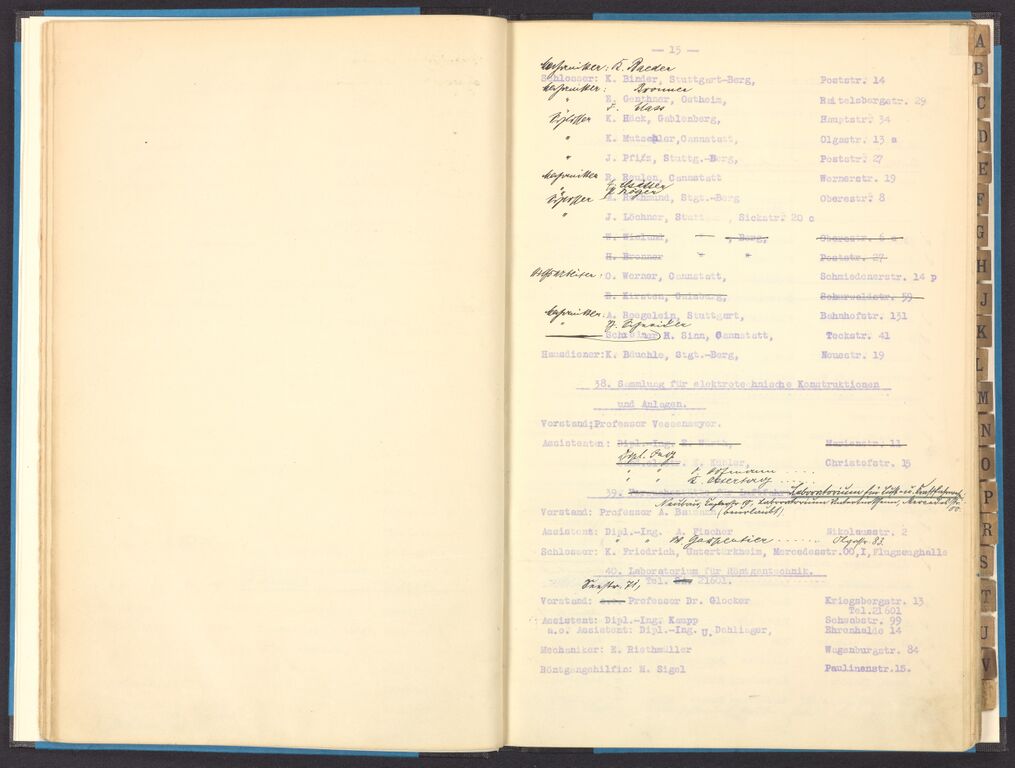 — 15 —
Mechaniker: K. Raeder
Schlosser: K. Binder, Stuttgart-Berg, Poststr. 14
Mechaniker: Bronner
" E. Genthner, Ostheim, Raitelsbergstr. 29
Schlosser K. Häck, Gablenberg, Hauptstr. 34
" K. Mutschler, Cannstatt, Olgastr. 13 a
" J. Pfi, Stuttg.-Berg, Poststr. 27
Mechaniker R. Roulen, Cannstatt Wernerstr. 19
Schlosser Rothmund, Stgt.-Berg Oberestr. 8
" J. Löchner, Stutt , Sickstr. 20 c
W. Wieland, " , Berg, Oberestr. 6 a
H. Bronner " " Poststr. 27
O. Werner, Cannstatt, Schmiedenerstr. 14 p
B. Kirsten, Gaisburg, Schurwaldstr. 59
Mechaniker: A. Roegelein, Stuttgart, Bahnhofstr. 131
" Schneider
Schreiner H. Sinn, Cannstatt, Teckstr. 41
Hausdiener: K. Bäuchle, Stgt.-Berg, Neuestr. 19
38. Sammlung für elektrotechnische Konstruktionen
und Anlagen.
Vorstand: Professor Veesenmeyer.
Assistenten: Dipl.-Ing. Marienstr. 11
Dipl. Ing
K. Kübler, Christofstr. 15
" "
" "
39. Laboratorium für
Vorstand: Professor A. (beurlaubt)
Assistent: Dipl.-Ing. A. Fischer Nikolausstr. 2
" " W. Carpentier Olgastr. 83
Schlosser: K. Friedrich, Untertürkheim, Mercedesstr. 00, I, Flugzeughalle
40. Laboratorium für Röntgentechnik.
Seestr. 71, Tel. 21601.
Vorstand: Professor Dr. Glocker Kriegsbergstr. 13
Tel. 21601
Assistent: Dipl.-Ing. Kaupp Schwabstr. 99
a.o. Assistent: Dipl.-Ing. U. Dehlinger, Ehrenhalde 14
Mechaniker: E. Riethmüller Wagenburgstr. 84
Röntgengehilfin: M. Sigel Paulinenstr. 15.
A
B
C
D
E
F
G
H
J
K
L
M
N
O
P
R
S
T
U
V